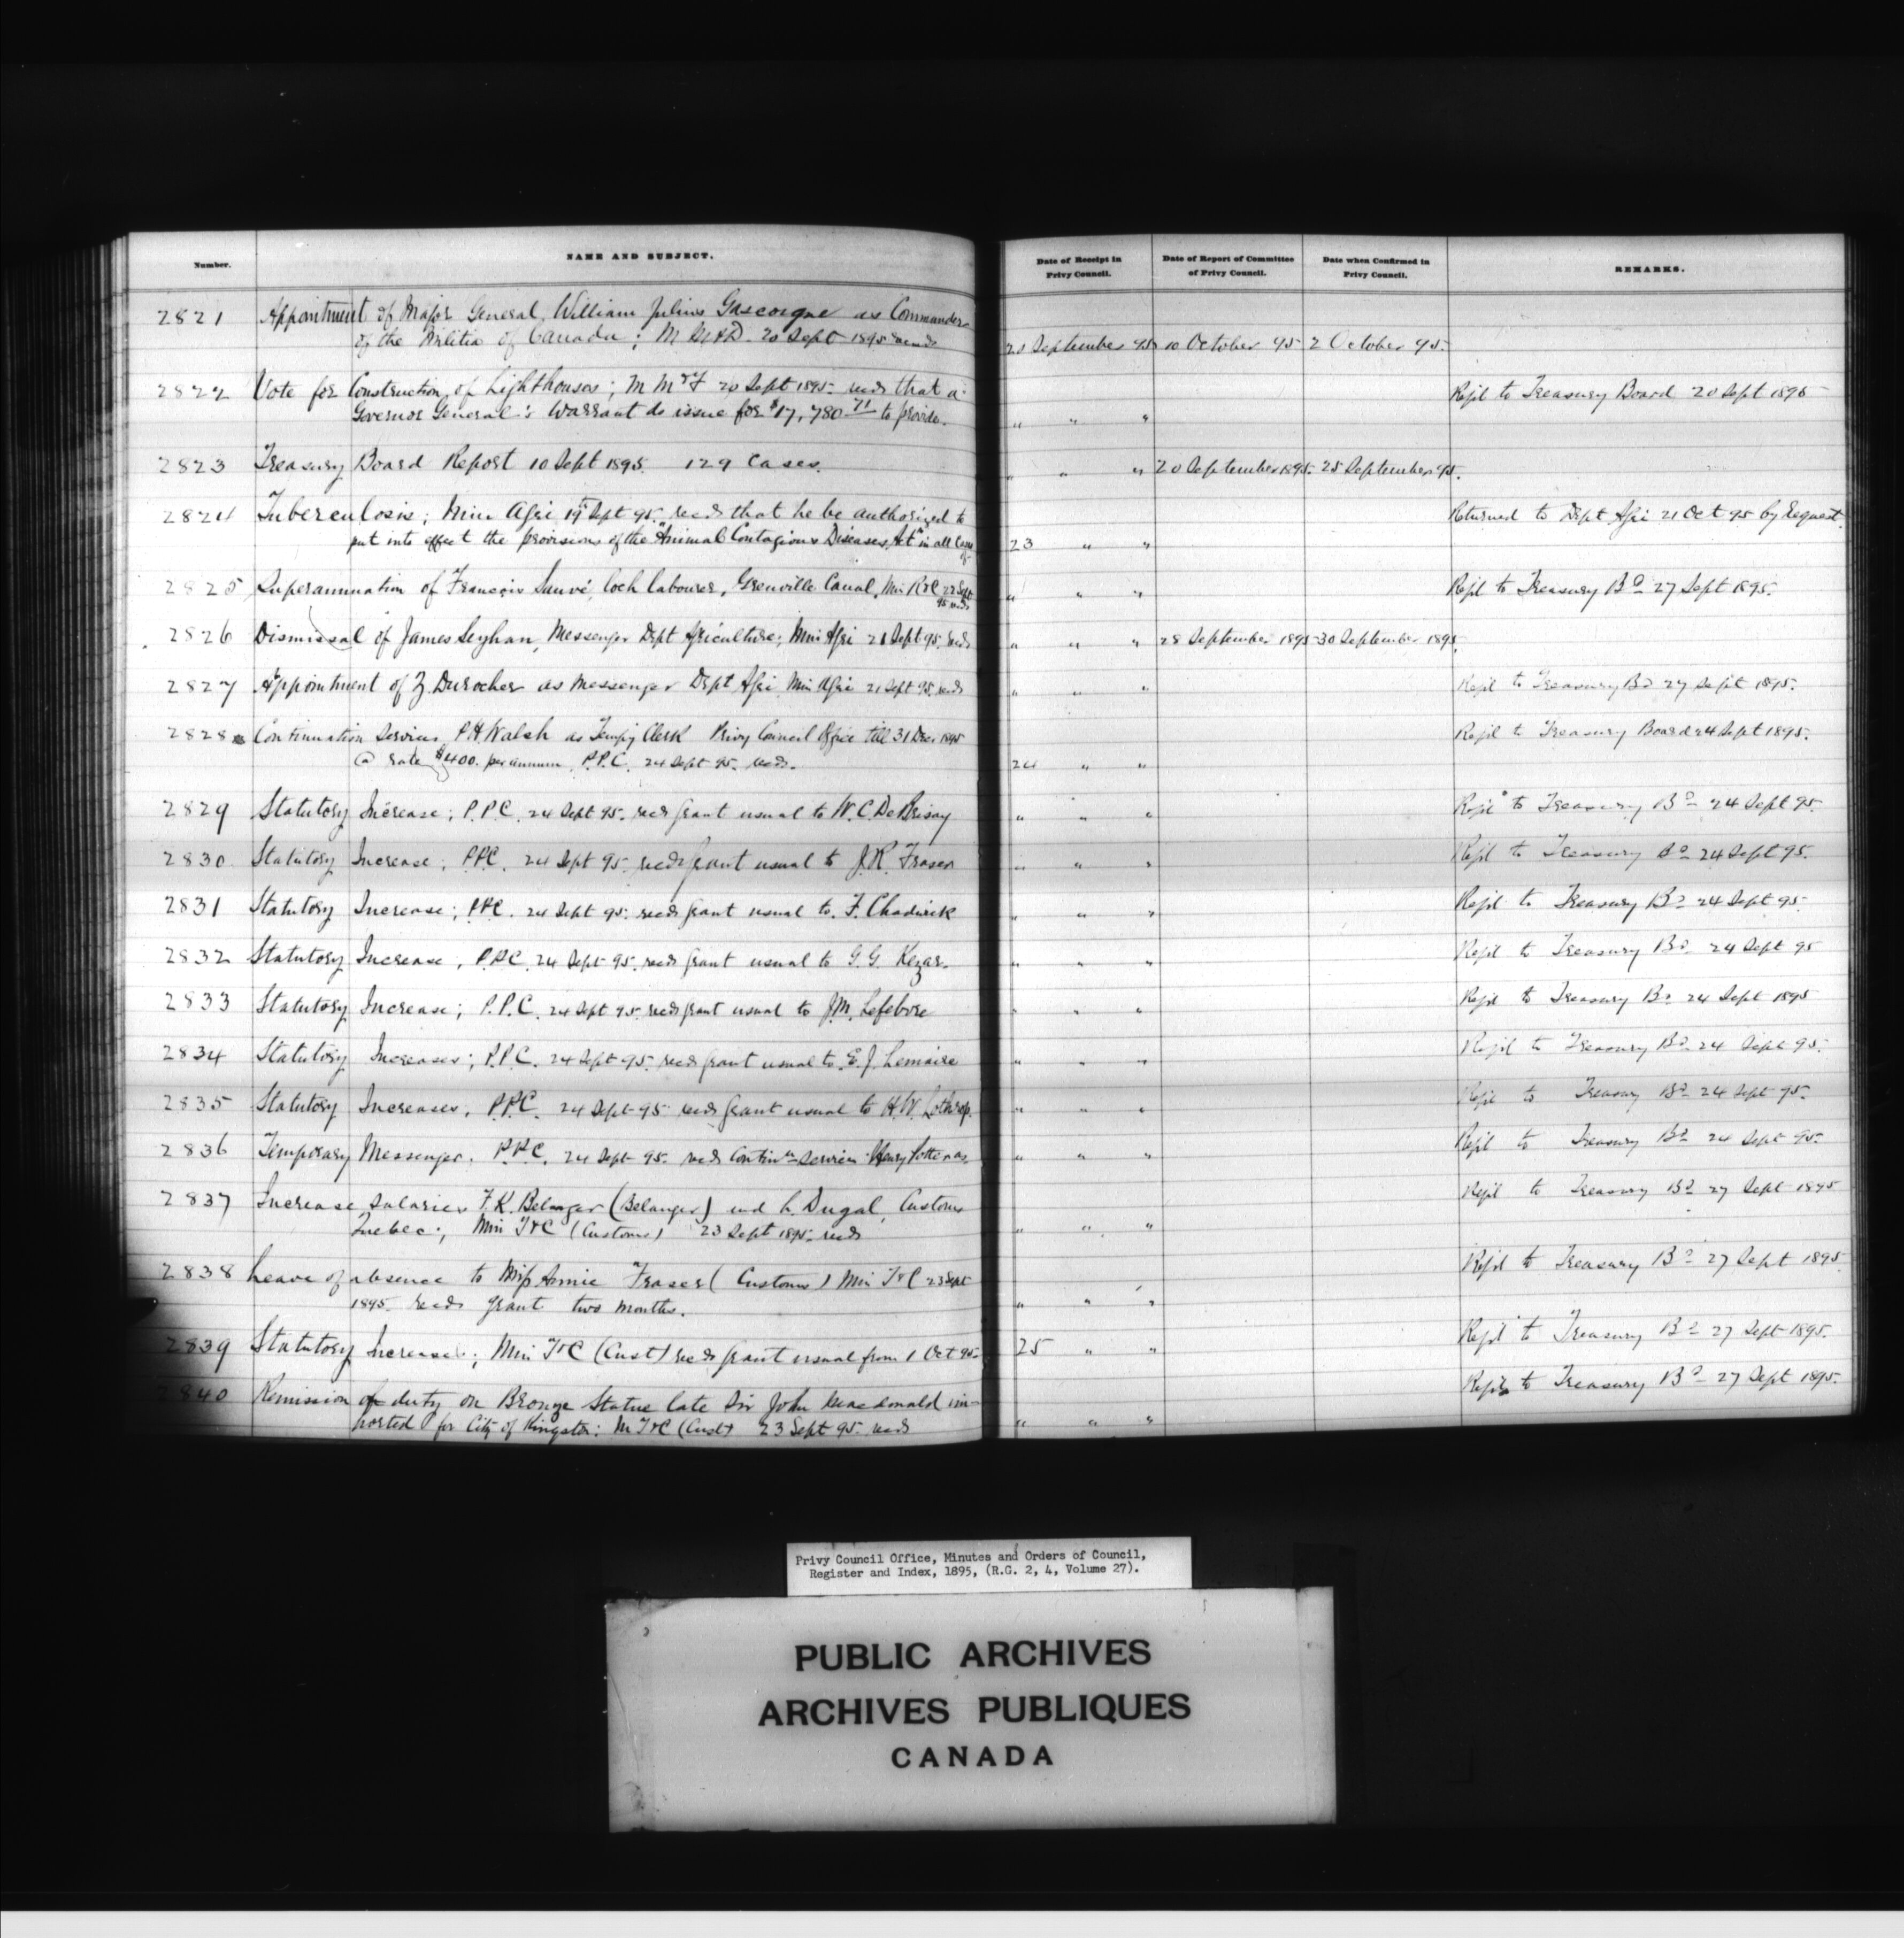 Number. NAME AND SUBJECT. Date of Receipt in Privy Council. Date of Report of Committee of Privy Council. Date when Confirmed in Privy Council. REMARKS.
2821 Appointment of Major General William Julius Gascoigne as Commander
of the Militia of Canada; M M & D. 20 Sept 1895 recds 20 September 95 10 October 95 2 October 95.
2822 Vote for Construction of Lighthouses; M M & F 20 Sept 1895 recds that a Refd to Treasury Board 20 Sept 1895
Governor General's Warrant do issue for $17,780 71 to provide. " " "
2823 Treasury Board Report 10 Sept 1895. 129 Cases. " " " 20 September 1895. 25 September 95.
2824 Tuberculosis; Min Agri 19th Sept 95. recds that he be authorized to Returned to Dept Agri 21 Oct 95 by Request.
put into effect the provisions of the "Animal Contagious Diseases Act" in all Cases of 23 " "
2825 Superannuation of Francois Sauvé, lock labourer, Grenville Canal, Min R & C 22 Sept 95 recds " " " Refd to Treasury Bd 27 Sept 1895.
2826 Dismissal of James Leyhan, Messenger Dept Agriculture; Min Agri 21 Sept 95. recds " " " 28 September 1895 30 September 1895.
2827 Appointment of Z. Durocher as Messenger Dept Agri, Min Agri 21 Sept 95. recds " " " Refd to Treasury Bd 27 Sept 1895.
2828 Continuation Services P.H. Walsh as Tempy Clerk Privy Council Office till 31 Dec 1895 Refd to Treasury Board 24 Sept 1895.
@ rate $400. per annum, P.P.C. 24 Sept 95. recds. 24 " "
2829 Statutory Increase; P.P.C. 24 Sept 95. recds grant usual to W.C. DeBrisay " " " Refd to Treasury Bd 24 Sept 95.
2830 Statutory Increase, P.P.C. 24 Sept 95. recds grant usual to J.R. Fraser " " " Refd to Treasury Bd 24 Sept 95.
2831 Statutory Increase; P.P.C. 24 Sept 95. recds grant usual to F. Chadwick " " " Refd to Treasury Bd 24 Sept 95.
2832 Statutory Increase, P.P.C. 24 Sept 95. recds grant usual to G.G. Kezar. " " " Refd to Treasury Bd 24 Sept 95
2833 Statutory Increase; P.P.C. 24 Sept 95. recds grant usual to J.M. Lefebvre " " " Refd to Treasury Bd 24 Sept 1895
2834 Statutory Increases; P.P.C. 24 Sept 95. recds grant usual to E.J. Lemaire " " " Refd to Treasury Bd 24 Sept 95.
2835 Statutory Increases, P.P.C. 24 Sept 95 recds grant usual to H.W. Lothrop. " " " Refd to Treasury Bd 24 Sept 95.
2836 Temporary Messenger, P.P.C. 24 Sept 95. recds Continn services Henry as " " " Refd to Treasury Bd 24 Sept 95.
2837 Increase Salaries F.K. Belanger (Belanger) and L. Dugal, Customs Refd to Treasury Bd 27 Sept 1895
Quebec; Min T & C (Customs) 23 Sept 1895. recds " " "
2838 Leave of absence to Miss Annie Fraser (Customs) Min T & C 23 Sept Refd to Treasury Bd 27 Sept 1895
1895. recds grant two months. " " "
2839 Statutory Increase; Min T & C (Cust) recds grant usual from 1 Oct 95 25 " " Refd to Treasury Bd 27 Sept 1895.
2840 Remission of duty on Bronze Statue late Sir John Macdonald im- Refd to Treasury Bd 27 Sept 1895.
ported for City of Kingston: M T & C (Cust) 23 Sept 95. recds " " "
Privy Council Office, Minutes and Orders of Council,
Register and Index, 1895, (R.G. 2, 4, Volume 27).
PUBLIC ARCHIVES
ARCHIVES PUBLIQUES
CANADA